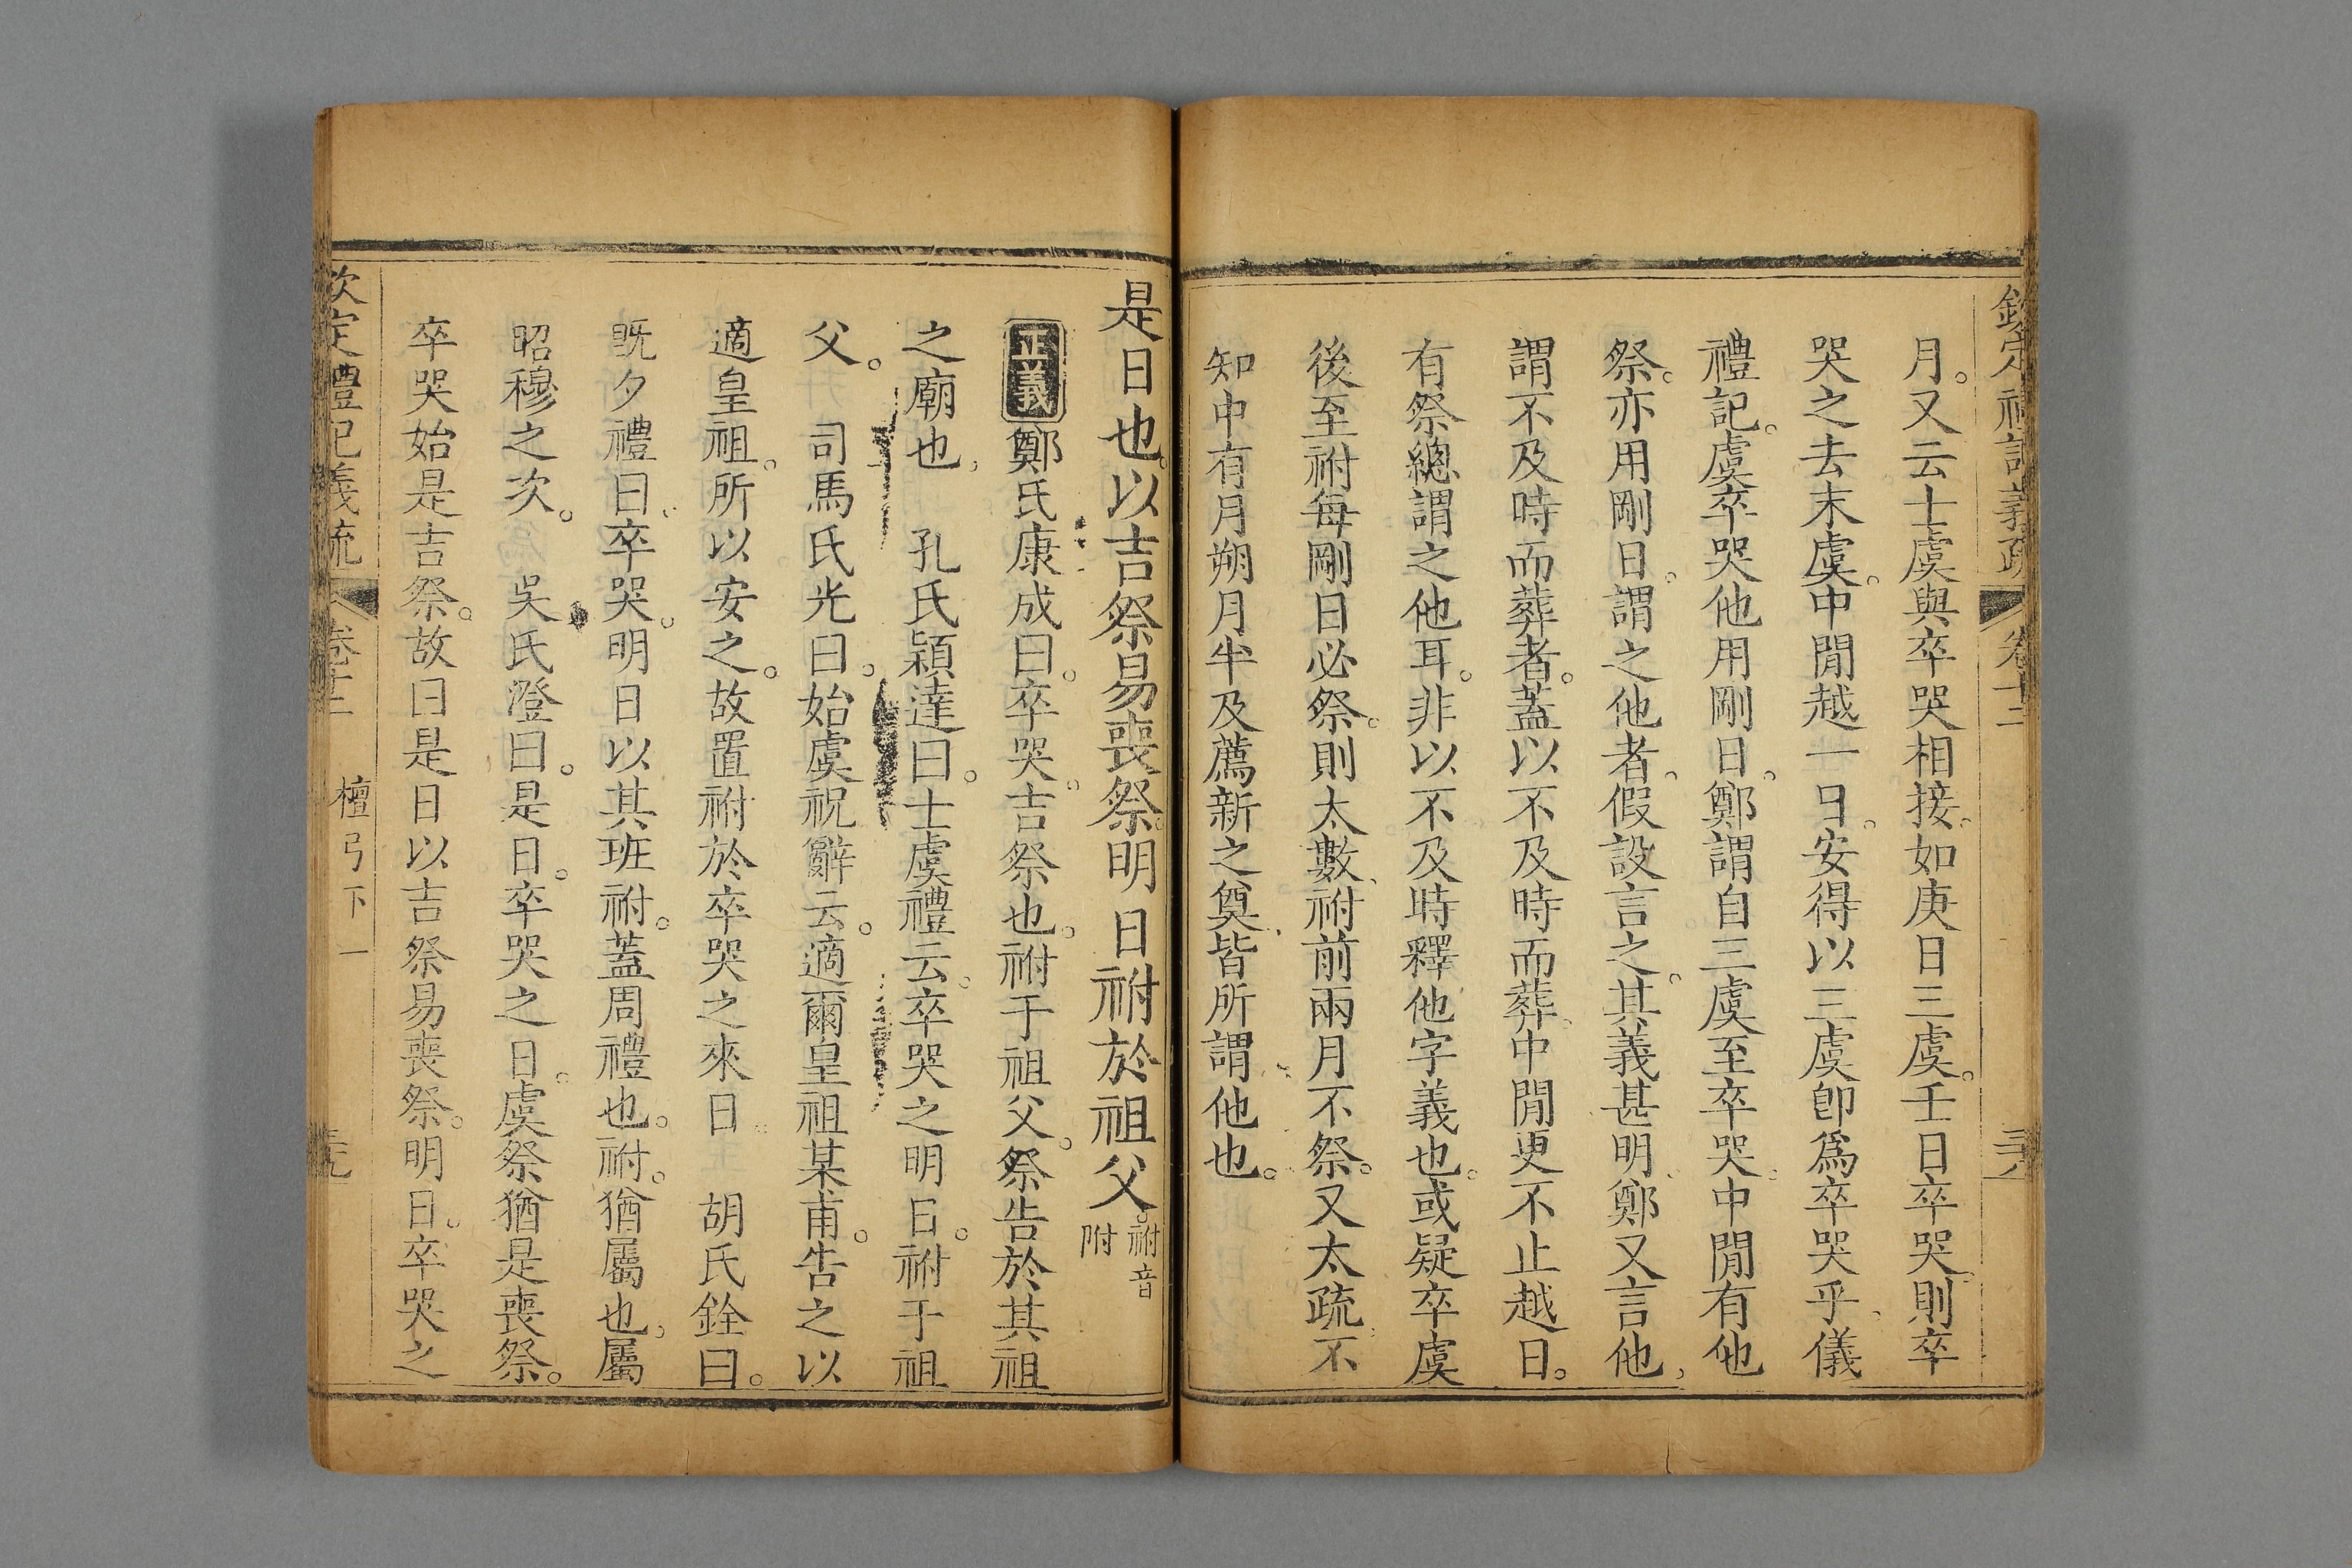 欽定禮記義疏 卷十二 三六
月。又云士虞與卒哭相接。如庚日三虞。壬日卒哭。則卒
哭之去末虞。中閒越一日。安得以三虞卽爲卒哭乎。儀
禮記。虞卒哭他用剛日。鄭謂自三虞至卒哭。中閒有他
祭。亦用剛日。謂之他者。假設言之。其義甚明。鄭又言他。
謂不及時而葬者。蓋以不及時而葬。中閒更不止越日。
有祭總謂之他耳。非以不及時釋他字義也。或疑卒虞
後至祔每剛日必祭。則太數。祔前兩月不祭。又太疏。不
知中有月朔月半及薦新之奠。皆所謂他也。
是日也。以吉祭易喪祭。明日祔於祖父。祔音附
正義 鄭氏康成曰。卒哭。吉祭也。祔于祖父。祭告於其祖
之廟也。 孔氏穎達曰。士虞禮云。卒哭之明日。祔于祖
父。 司馬氏光曰。始虞祝辭云。適爾皇祖某甫。告之以
適皇祖。所以安之。故置祔於卒哭之來日。 胡氏銓曰。
旣夕禮曰。卒哭。明日以其班祔。蓋周禮也。祔。猶屬也。屬
昭穆之次。 吳氏澄曰。是日。卒哭之日。虞祭猶是喪祭。
卒哭始是吉祭。故曰是日以吉祭易喪祭。明日。卒哭之
欽定禮記義疏 卷十二 檀弓下一